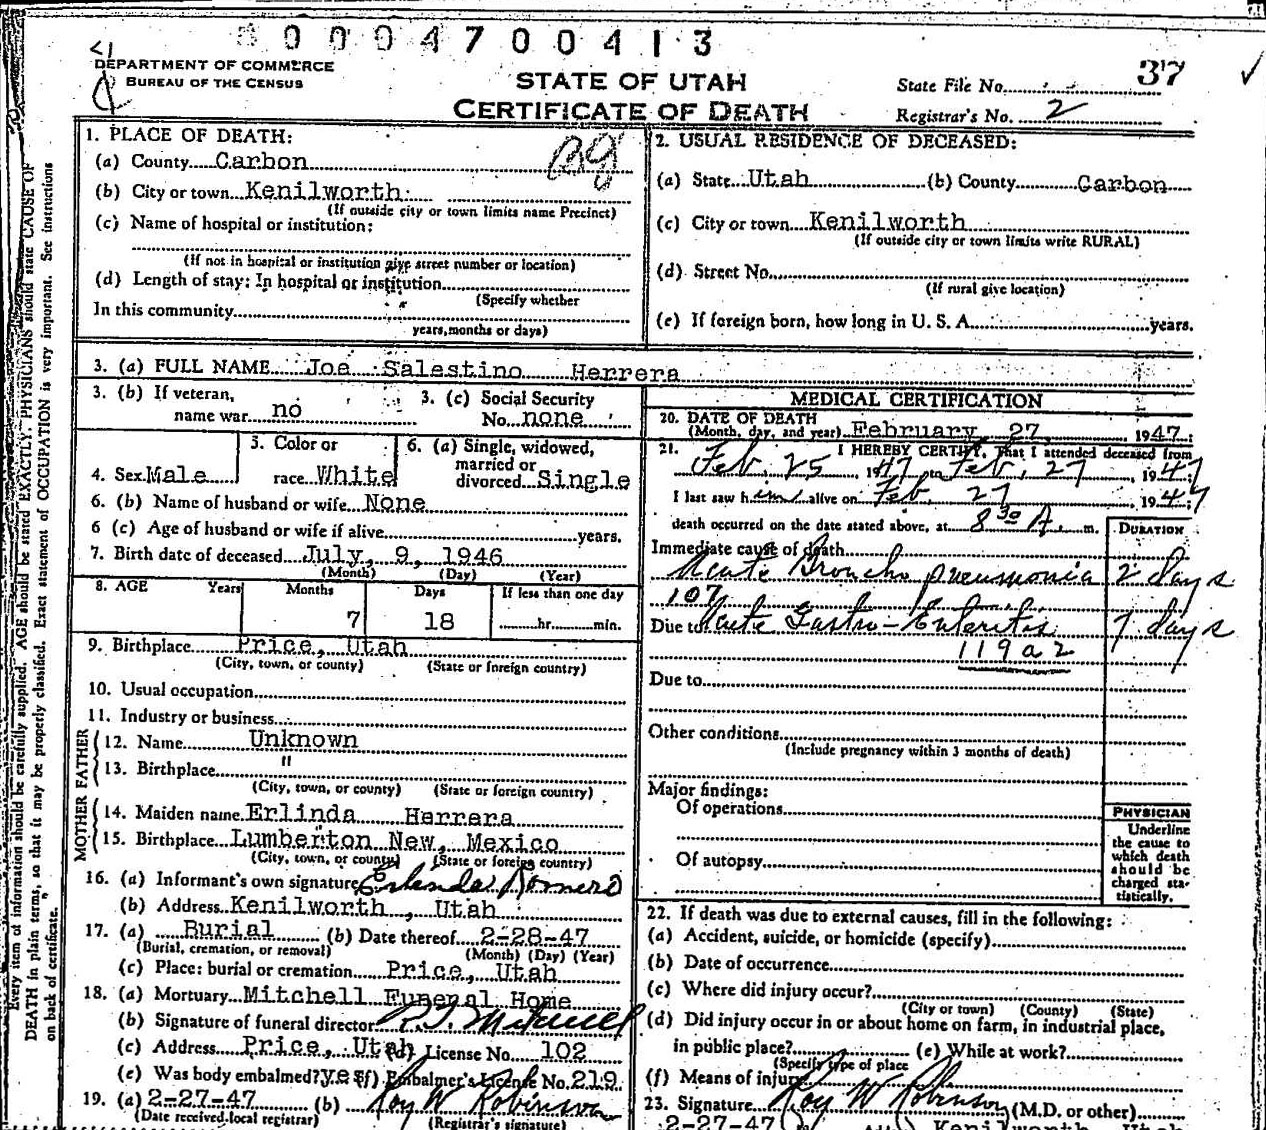 0 0 0 4 7 0 0 4 1 3
DEPARTMENT OF COMMERCE
BUREAU OF THE CENSUS
STATE OF UTAH
CERTIFICATE OF DEATH
State File No. 37
Registrar's No. 2
Every item of information should be carefully supplied. AGE should be stated EXACTLY. PHYSICIANS should state CAUSE OF
DEATH in plain terms, so that it may be properly classified. Exact statement of OCCUPATION is very important. See instructions
on back of certificate.
1. PLACE OF DEATH:
(a) County Carbon
(b) City or town Kenilworth
(If outside city or town limits name Precinct)
(c) Name of hospital or institution:
(If not in hospital or institution give street number or location)
(d) Length of stay: In hospital or institution
(Specify whether
In this community
years, months or days)
2. USUAL RESIDENCE OF DECEASED:
(a) State Utah (b) County Carbon
(c) City or town Kenilworth
(If outside city or town limits write RURAL)
(d) Street No.
(If rural give location)
(e) If foreign born, how long in U. S. A. years.
3. (a) FULL NAME Joe Salestino Herrera
3. (b) If veteran,
name war no
3. (c) Social Security
No. none
4. Sex Male
5. Color or
race White
6. (a) Single, widowed,
married or
divorced Single
6. (b) Name of husband or wife None
6 (c) Age of husband or wife if alive years.
7. Birth date of deceased July, 9, 1946
(Month) (Day) (Year)
8. AGE Years Months Days If less than one day
7 18 hr. min.
9. Birthplace Price, Utah
(City, town, or county) (State or foreign country)
10. Usual occupation
11. Industry or business
FATHER
12. Name Unknown
13. Birthplace "
(City, town, or county) (State or foreign country)
MOTHER
14. Maiden name Erlinda Herrera
15. Birthplace Lumberton New, Mexico
(City, town, or county) (State or foreign country)
16. (a) Informant's own signature Erlinda Romero
(b) Address Kenilworth , Utah
17. (a) Burial (b) Date thereof 2-28-47
(Burial, cremation, or removal) (Month) (Day) (Year)
(c) Place: burial or cremation Price, Utah
18. (a) Mortuary Mitchell Funeral Home
(b) Signature of funeral director R. J. Mitchell
(c) Address Price, Utah (d) License No. 102
(e) Was body embalmed? yes (f) Embalmer's License No. 219
19. (a) 2-27-47 (b) Roy W Robinson
(Date received local registrar) (Registrar's signature)
MEDICAL CERTIFICATION
20. DATE OF DEATH
(Month, day, and year) February 27, 1947;
21. I HEREBY CERTIFY, That I attended deceased from
Feb. 25 1947 to Feb. 27 1947
I last saw him alive on Feb 27 1947;
death occurred on the date stated above, at 8 30 A. m.
DURATION
Immediate cause of death
Acute Broncho pneumonia 2 days
107
Due to Acute Gastro-Enteritis 7 days
119a2
Due to
Other conditions
(Include pregnancy within 3 months of death)
Major findings:
Of operations
Of autopsy
PHYSICIAN
Underline
the cause to
which death
should be
charged sta-
tistically.
22. If death was due to external causes, fill in the following:
(a) Accident, suicide, or homicide (specify)
(b) Date of occurrence
(c) Where did injury occur?
(City or town) (County) (State)
(d) Did injury occur in or about home on farm, in industrial place,
in public place? (e) While at work?
(Specify type of place
(f) Means of injury
23. Signature Roy W Robinson (M.D. or other)
2-27-47 Kenilworth Utah